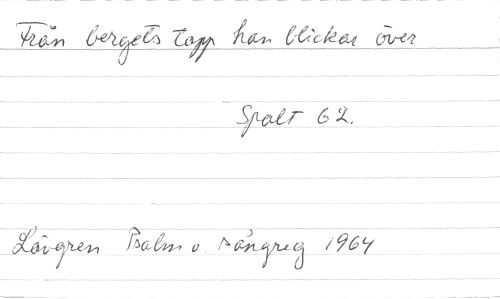 Från bergets topp han blickar över
Spalt 62.
Lövgren Psalm o. sångreg 1964